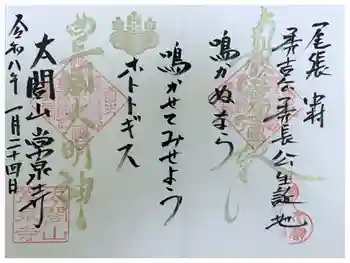 尾張 中村
秀吉公 秀長公生誕地
鳴かぬなら
鳴かせてみせよう
ホトトギス
豊國大明神
太閤山 常泉寺
令和八年 一月二十四日